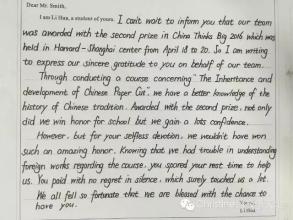 Dear Mr. Smith,
I am Li Hua, a student of yours. I can't wait to inform you that our team
was awarded with the second prize in China Thinks Big 2016 which was
held in Harvard-Shanghai center from April 18 to 20. So I am writing
to express our sincere gratitude to you on behalf of our team.
Through conducting a course concerning "The Inheritance and
development of Chinese Paper Cut", we have a better knowledge of the
history of Chinese tradition. Awarded with the second prize, not only
did we win honor for school but we gain a lots confidence.
However, but for your selfless devotion, we wouldn't have won
such an amazing honor. Knowing that we had trouble in understanding
foreign works regarding the course, you spared your rest time to help
us. You paid with no regret in silence, which surely touched us a lot.
We all fell so fortunate that we are blessed with the chance to
have you.
Yours,
Li Hua